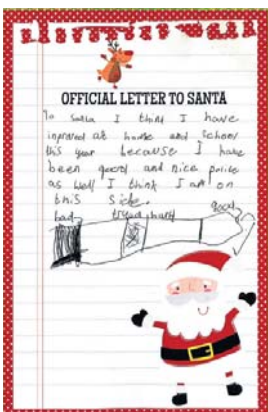 OFFICIAL LETTER TO SANTA
To Santa I think I have
improved at home and school
this year because I have
been good and nice polite
as well I think I am on
this side.
bad tryed hard good